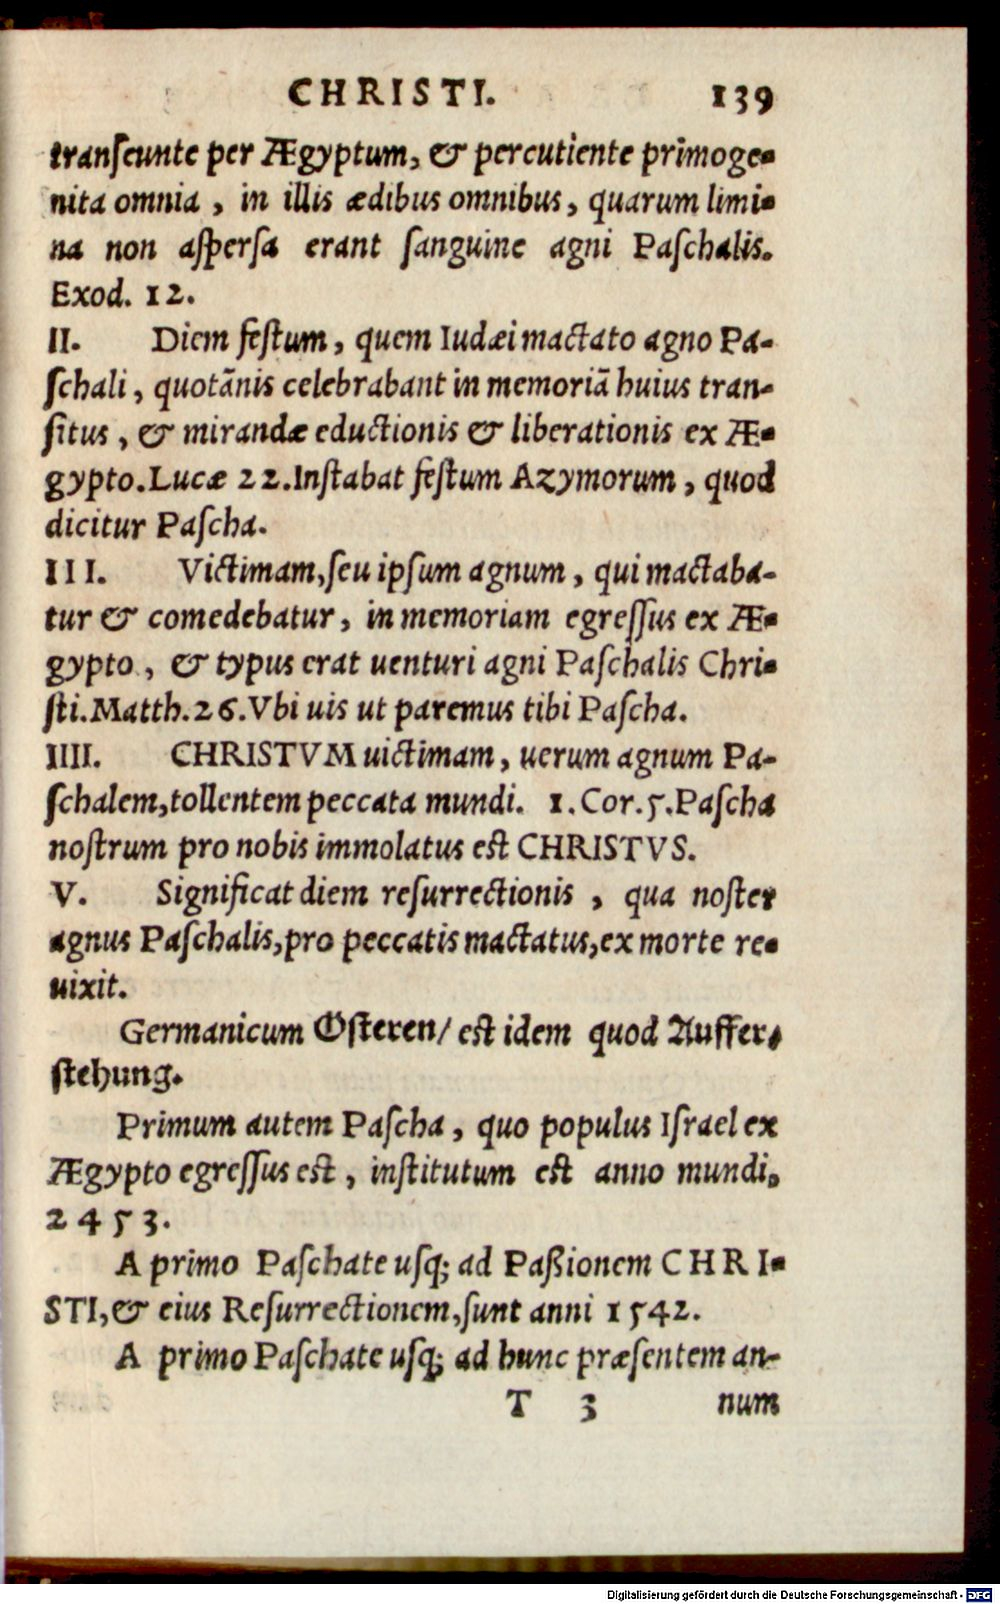 CHRISTI. 139
tranſeunte per Ægyptum, & percutiente primoge-
nita omnia, in illis ædibus omnibus, quarum limi-
na non aſperſa erant ſanguine agni Paſchalis.
Exod. 12.
II. Diem feſtum, quem Iudæi mactato agno Pa-
ſchali, quotãnis celebrabant in memoriã huius tran-
ſitus, & mirandæ eductionis & liberationis ex Æ-
gypto. Lucæ 22. Inſtabat feſtum Azymorum, quod
dicitur Paſcha.
III. Victimam, ſeu ipſum agnum, qui mactaba-
tur & comedebatur, in memoriam egreſſus ex Æ-
gypto, & typus erat uenturi agni Paſchalis Chri-
ſti. Matth. 26. Vbi uis ut paremus tibi Paſcha.
IIII. CHRISTVM uictimam, uerum agnum Pa-
ſchalem, tollentem peccata mundi. 1. Cor. 5. Paſcha
noſtrum pro nobis immolatus eſt CHRISTVS.
V. Significat diem reſurrectionis, qua noſter
agnus Paſchalis, pro peccatis mactatus, ex morte re-
uixit.
Germanicum Oſteren/ eſt idem quod Auffer-
ſtehung.
Primum autem Paſcha, quo populus Iſrael ex
Ægypto egreſſus eſt, inſtitutum eſt anno mundi.
2453.
A primo Paſchate uſq; ad Paßionem CHRI-
STI, & eius Reſurrectionem, ſunt anni 1542.
A primo Paſchate uſq; ad hunc præſentem an-
T 3 num
Digitalisierung gefördert durch die Deutsche Forschungsgemeinschaft - DFG